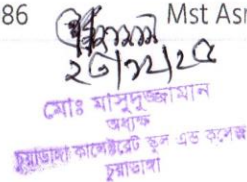 86 Mst Asr
২৩/১২/২৫
মোঃ মাসুদুজ্জামান
অধ্যক্ষ
চুয়াডাঙ্গা কালেক্টরেট স্কুল এন্ড কলেজ
চুয়াডাঙ্গা